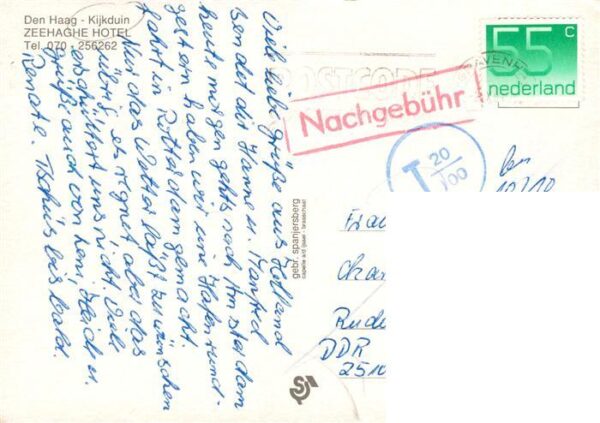 Den Haag - Kijkduin
ZEEHAGHE HOTEL
Tel. 070 - 256262
Viel liebe Grüße aus Holland
sendet dir Hanne u. Manfred
heute morgen gehts nach Amsterdam
gestern haben wir eine Hafenrund-
fahrt in Rotterdam gemacht.
Nur das Wetter läßt zu wünschen
übrig, es regnet aber das
erschüttert uns nicht. Viele
Grüße auch von Leni, Heidi u.
Renate. Tschüs bis bald.
gebr. spanjersberg
capelle a/d ijssel - brasschaat
POSTCODE
Nachgebühr
55 c
nederland
T 20/100
Frau
DDR
2510